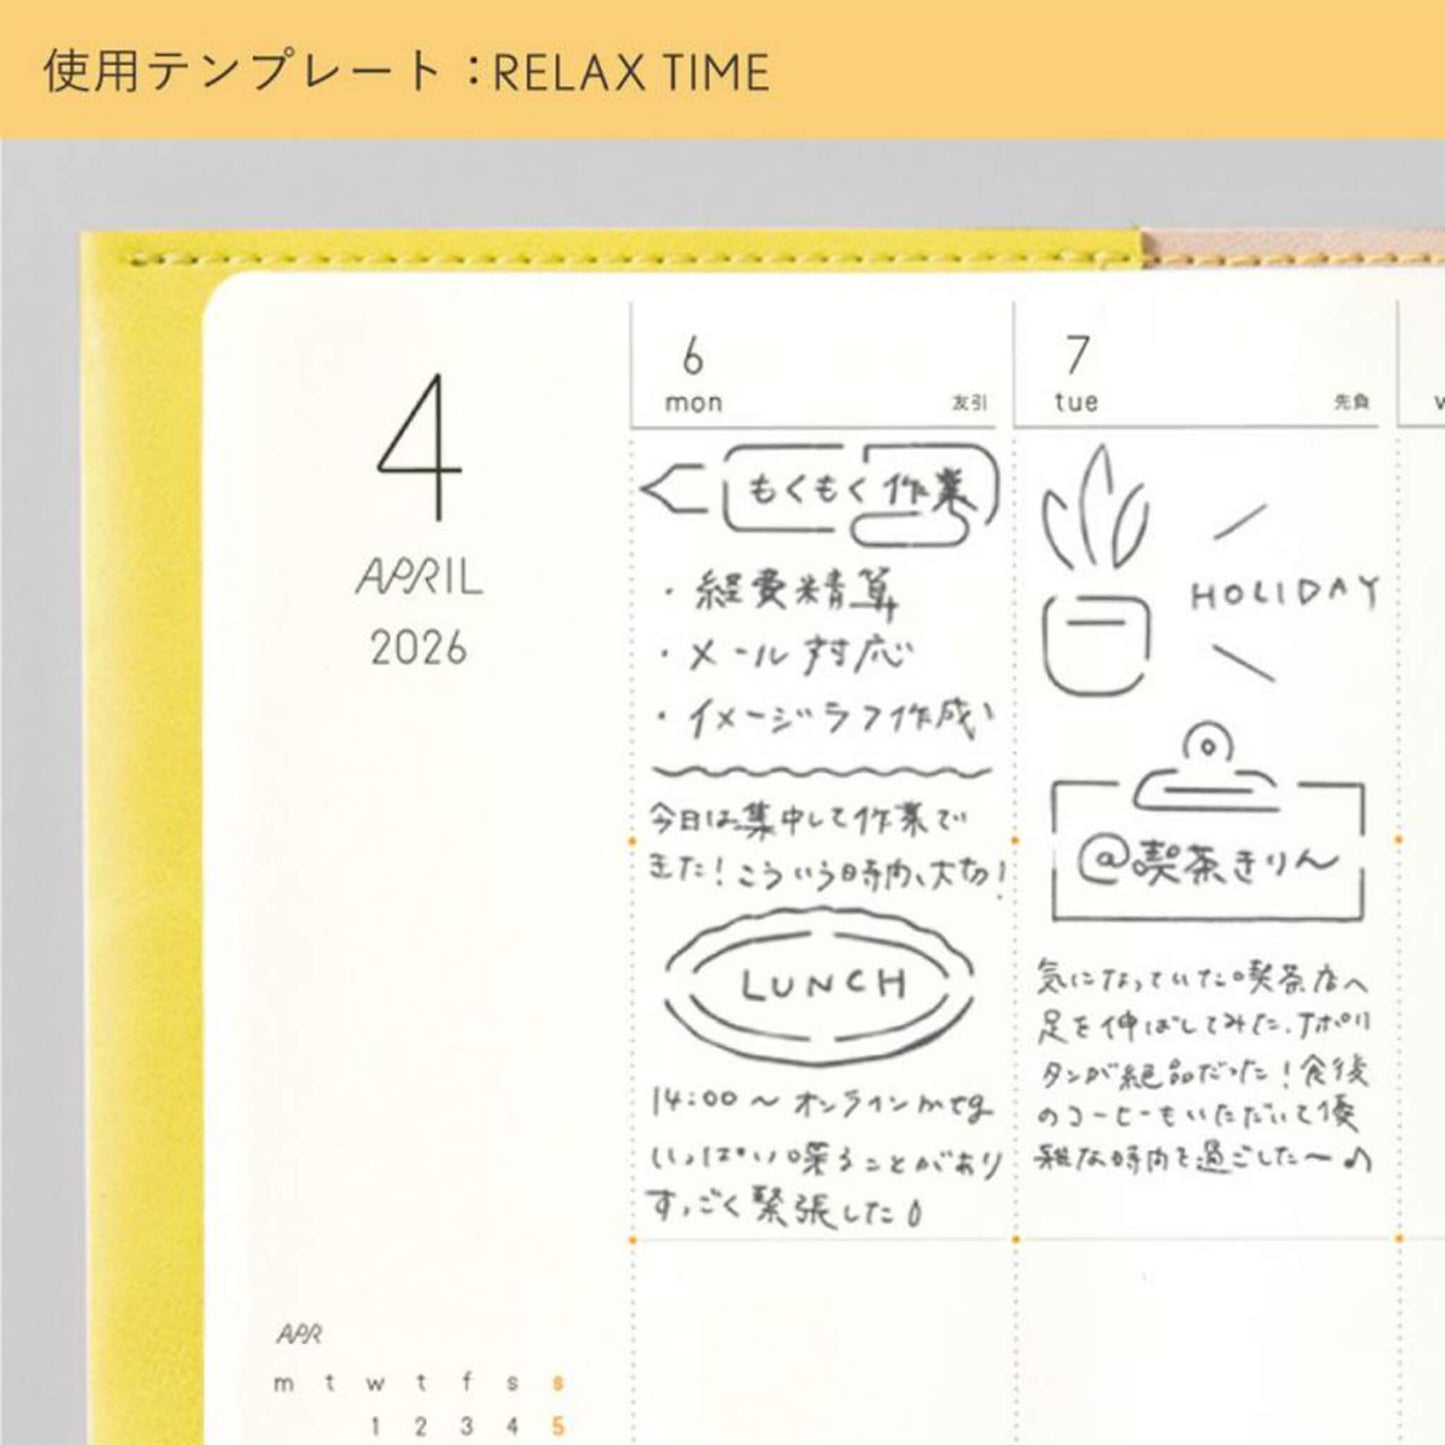 使用テンプレート：RELAX TIME
4
APRIL
2026
6
mon 友引
もくもく作業
・経費精算
・メール対応
・イメージラフ作成
今日は集中して作業で
きた！こういう時間、大切！
LUNCH
14:00〜オンラインmtg
いっぱい喋ることがあり
すっごく緊張した
7
tue 先負
HOLIDAY
@喫茶きりん
気になっていた喫茶店へ
足を伸ばしてみた。ナポリ
タンが絶品だった！食後
のコーヒーもいただいて優
雅な時間を過ごした〜♪
w
APR
m t w t f s s
1 2 3 4 5